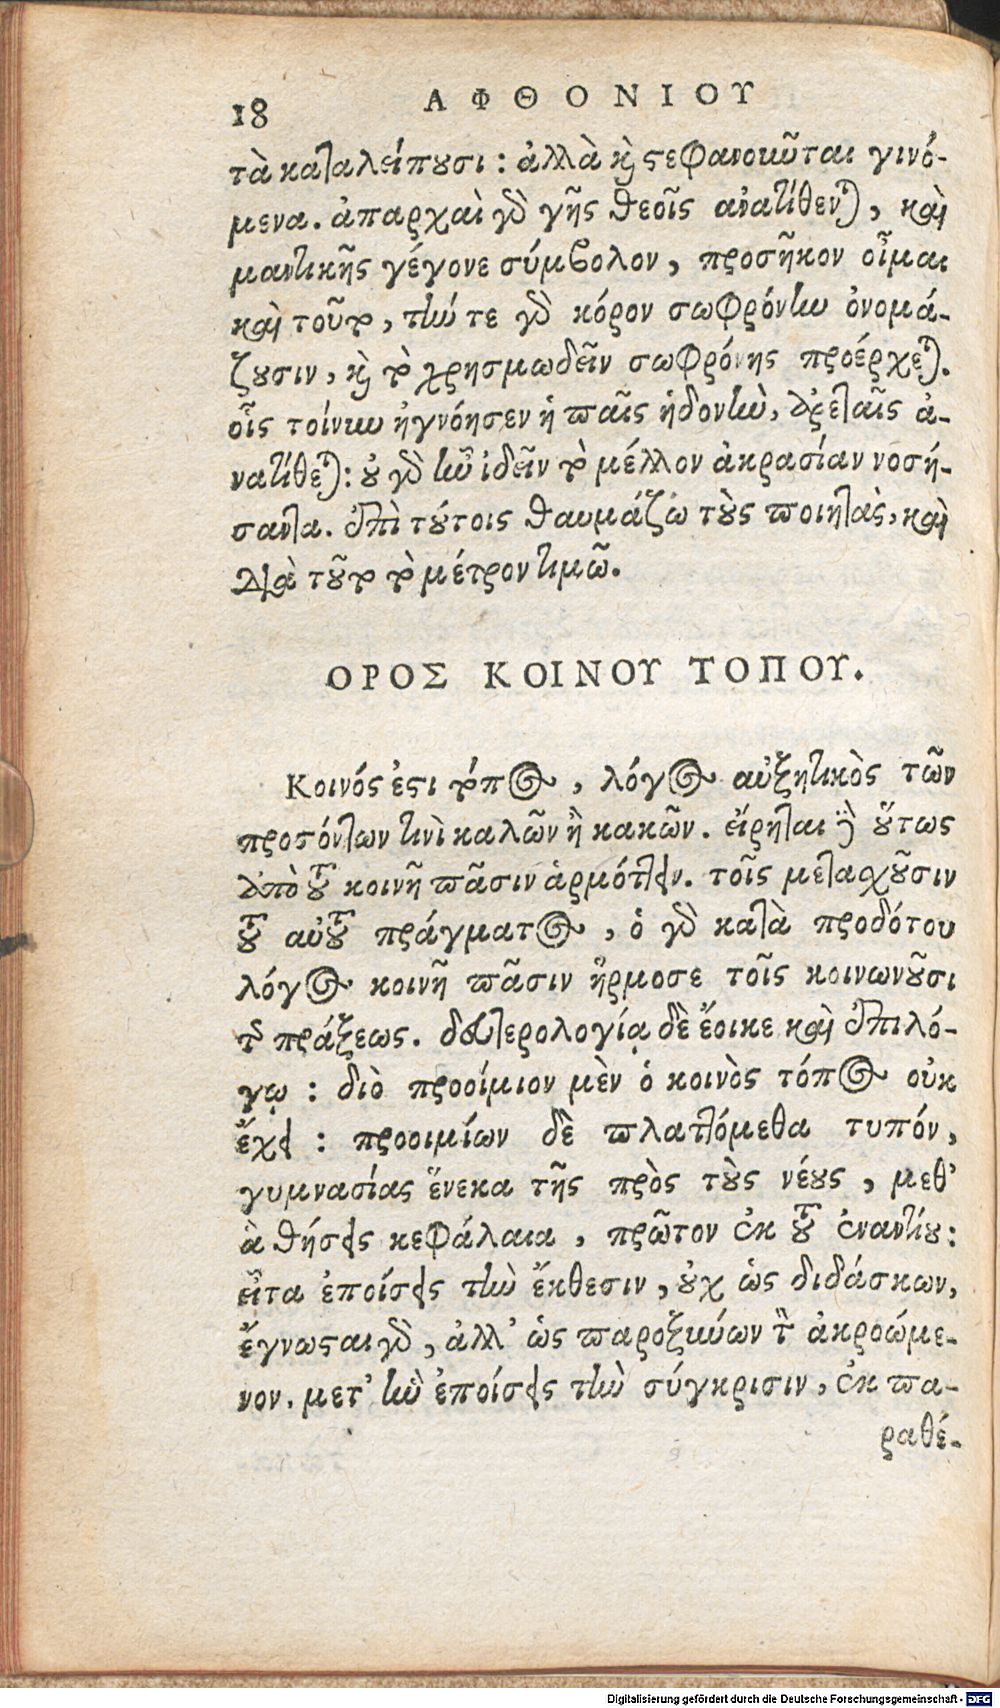 18 ΑΦΘΟΝΙΟΥ
τὰ καταλείπουσι: ἀλλὰ καὶ στεφανοῦνται γινό-
μενα. ἀπαρχαὶ γὰρ γῆς θεοῖς ἀνατίθενται, καὶ
μαντικῆς γέγονε σύμβολον, προσῆκον οἶμαι
καὶ τοῦτο, τήν τε γὰρ κόρην σωφρόνην ὀνομά-
ζουσιν, καὶ τὸ χρησμωδεῖν σωφρόνης προέρχεται.
οἷς τοίνυν ἠγνόησεν ἡ παῖς ἡδονὴν, ἀρεταῖς ἀ-
νατίθεται: οὐ γὰρ ἦν ἰδεῖν τὸ μέλλον ἀκρασίαν νοσή-
σαντα. ἐπὶ τούτοις θαυμάζω τοὺς ποιητὰς, καὶ
διὰ τοῦτο τὸ μέτρον τιμῶ.
ΟΡΟΣ ΚΟΙΝΟΥ ΤΟΠΟΥ.
Κοινός ἐστι τόπος, λόγος αὐξητικὸς τῶν
προσόντων τινὶ καλῶν ἢ κακῶν. εἴρηται δὲ οὕτως
ἀπὸ τοῦ κοινῇ πᾶσιν ἁρμόττειν. τοῖς μεταχοῦσιν
τοῦ αὐτοῦ πράγματος, ὁ γὰρ κατὰ προδότου
λόγος κοινῇ πᾶσιν ἥρμοσε τοῖς κοινωνοῦσι
τῆς πράξεως. δευτερολογίᾳ δὲ ἔοικε καὶ ἐπιλό-
γῳ: διὸ προοίμιον μὲν ὁ κοινὸς τόπος οὐκ
ἔχει: προοιμίων δὲ πλαττόμεθα τυπόν,
γυμνασίας ἕνεκα τῆς πρὸς τοὺς νέους, μεθ’
ἃ θήσεις κεφάλαια, πρῶτον ἐκ τοῦ ἐναντίου:
εἶτα ἐποίσεις τὴν ἔκθεσιν, οὐχ ὡς διδάσκων,
ἔγνωσται γὰρ, ἀλλ’ ὡς παροξύνων τὸν ἀκροώμε-
νον. μετ’ ἣν ἐποίσεις τὴν σύγκρισιν, ἐκ πα-
ραθέ-
Digitalisierung gefördert durch die Deutsche Forschungsgemeinschaft - DFG